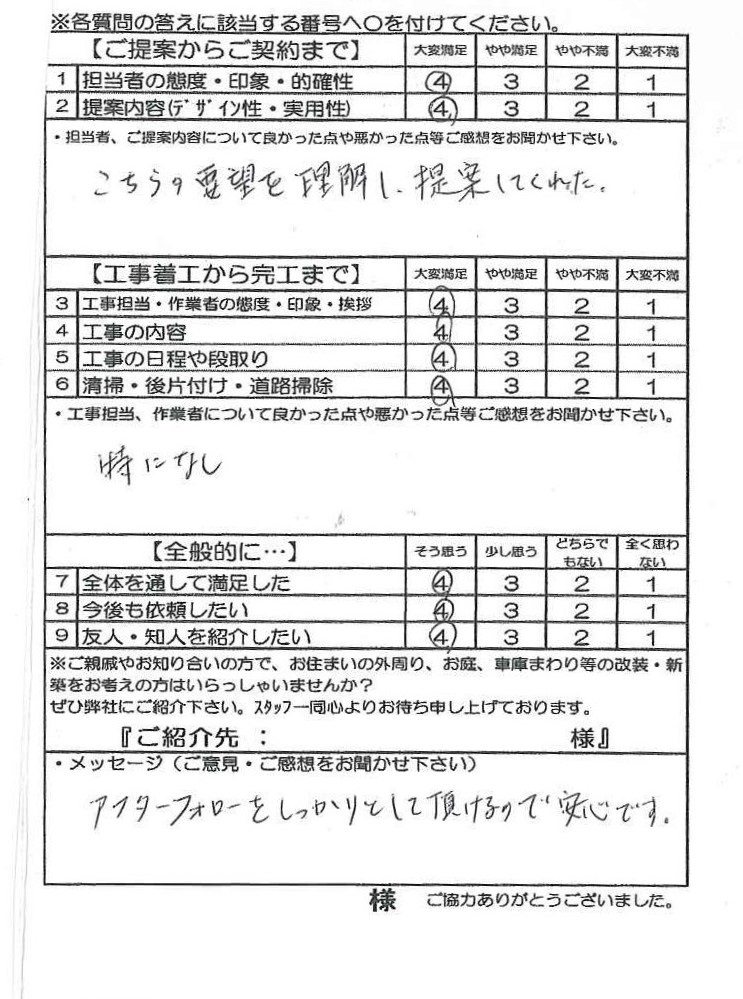 ※各質問の答えに該当する番号へ○を付けてください。
【ご提案からご契約まで】 大変満足 やや満足 やや不満 大変不満
1 担当者の態度・印象・的確性 4 3 2 1
2 提案内容(ﾃﾞｻﾞｲﾝ性・実用性) 4 3 2 1
・担当者、ご提案内容について良かった点や悪かった点等ご感想をお聞かせ下さい。
こちらの要望を理解し、提案してくれた。
【工事着工から完工まで】 大変満足 やや満足 やや不満 大変不満
3 工事担当・作業者の態度・印象・挨拶 4 3 2 1
4 工事の内容 4 3 2 1
5 工事の日程や段取り 4 3 2 1
6 清掃・後片付け・道路掃除 4 3 2 1
・工事担当、作業者について良かった点や悪かった点等ご感想をお聞かせ下さい。
特になし
【全般的に…】 そう思う 少し思う どちらでもない 全く思わない
7 全体を通して満足した 4 3 2 1
8 今後も依頼したい 4 3 2 1
9 友人・知人を紹介したい 4 3 2 1
※ご親戚やお知り合いの方で、お住まいの外周り、お庭、車庫まわり等の改装・新
築をお考えの方はいらっしゃいませんか？
ぜひ弊社にご紹介下さい。ｽﾀｯﾌ一同心よりお待ち申し上げております。
『ご紹介先： 様』
・メッセージ（ご意見・ご感想をお聞かせ下さい）
アフターフォローをしっかりとして頂けるので安心です。
様 ご協力ありがとうございました。